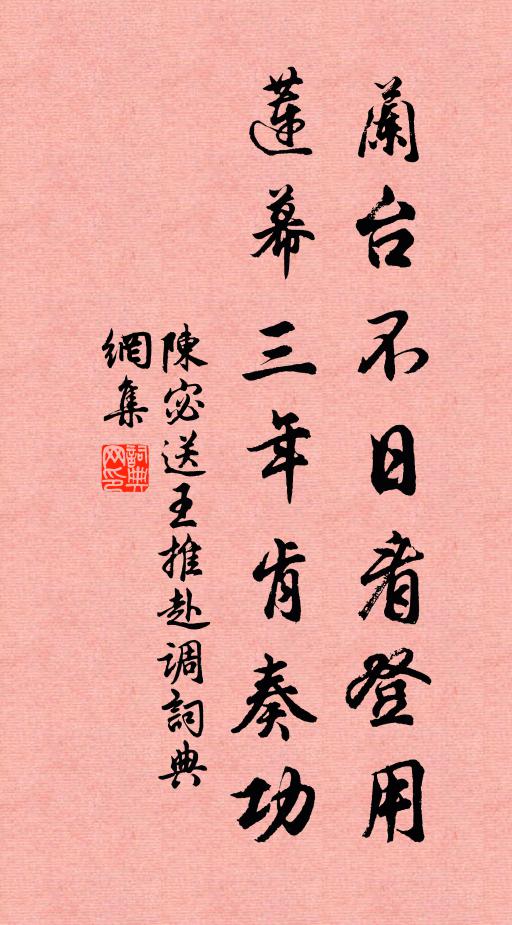 蘭台不日看登用
蓮幕三年肯奏功
陳宓送王推赴调詞典
網集
詞典網印